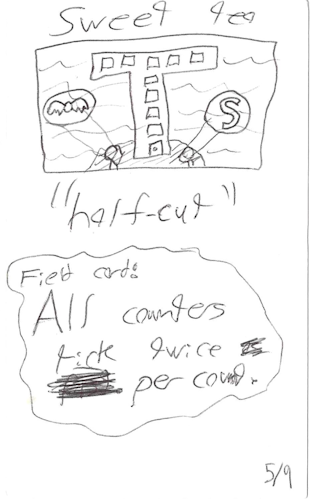 Sweet tea
T
S
"half-cut"
Field card:
All counters
tick twice
per count.
5/9